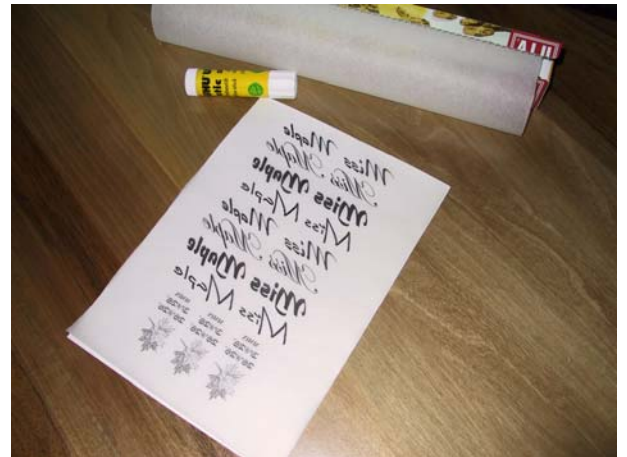 ALU
UHU
stic
Miss Maple
Miss Maple
Miss Maple
Miss Maple
Miss Maple
Miss Maple
Miss Maple
Miss Maple